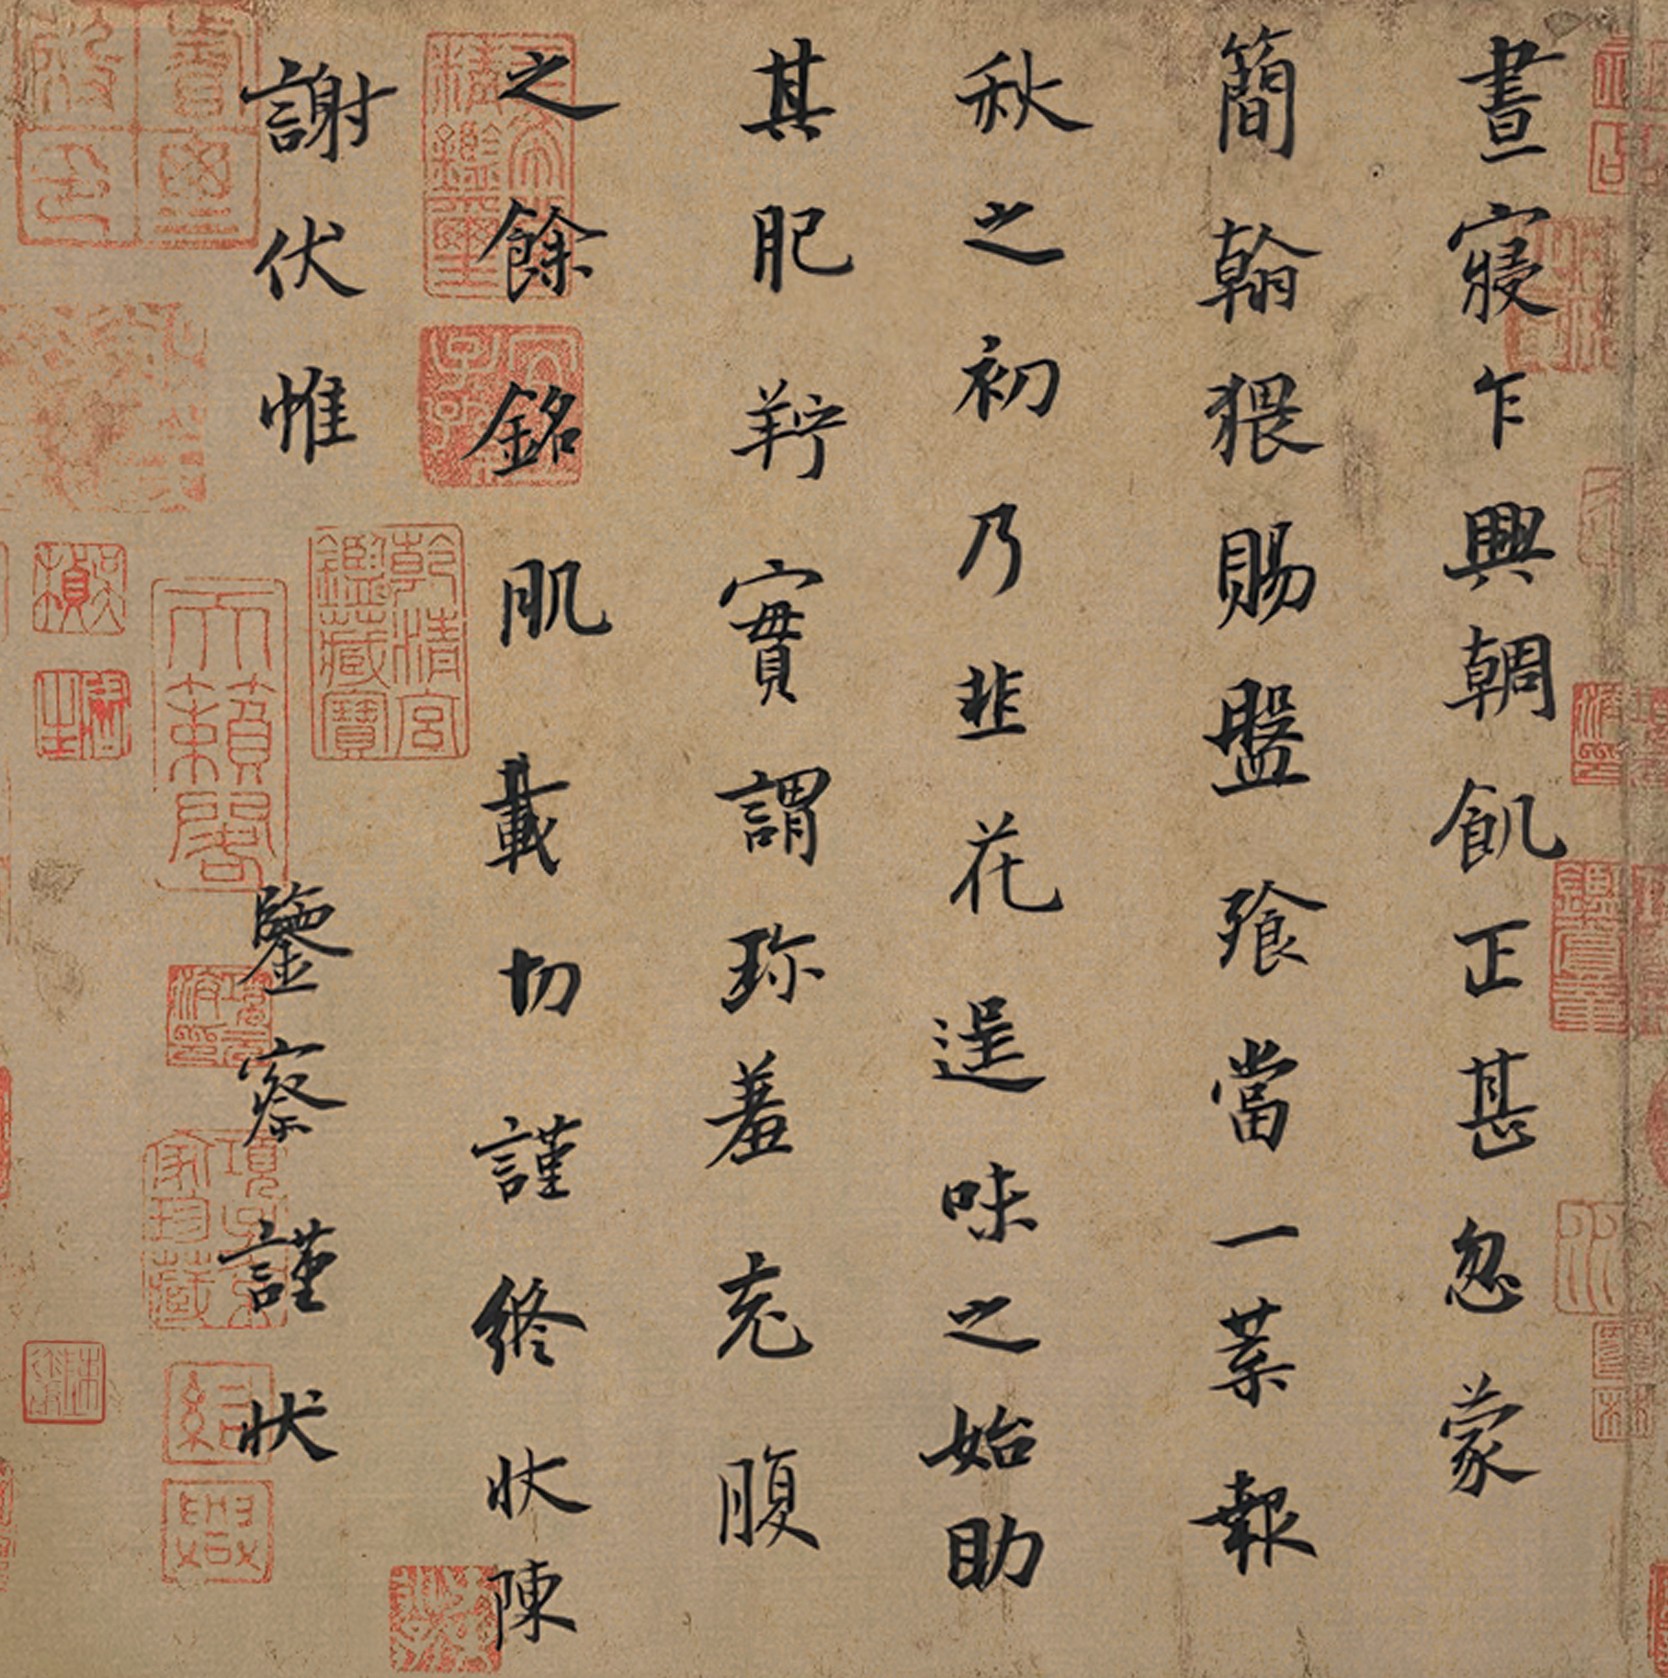 晝寢乍興輖飢正甚忽蒙
簡翰猥賜盤飧當一葉報
秋之初乃韭花逞味之始助
其肥羜實謂珍羞充腹
之餘銘肌載切謹終狀陳
謝伏惟鑒察謹狀
乾清宮鑑藏寶
天籟閣